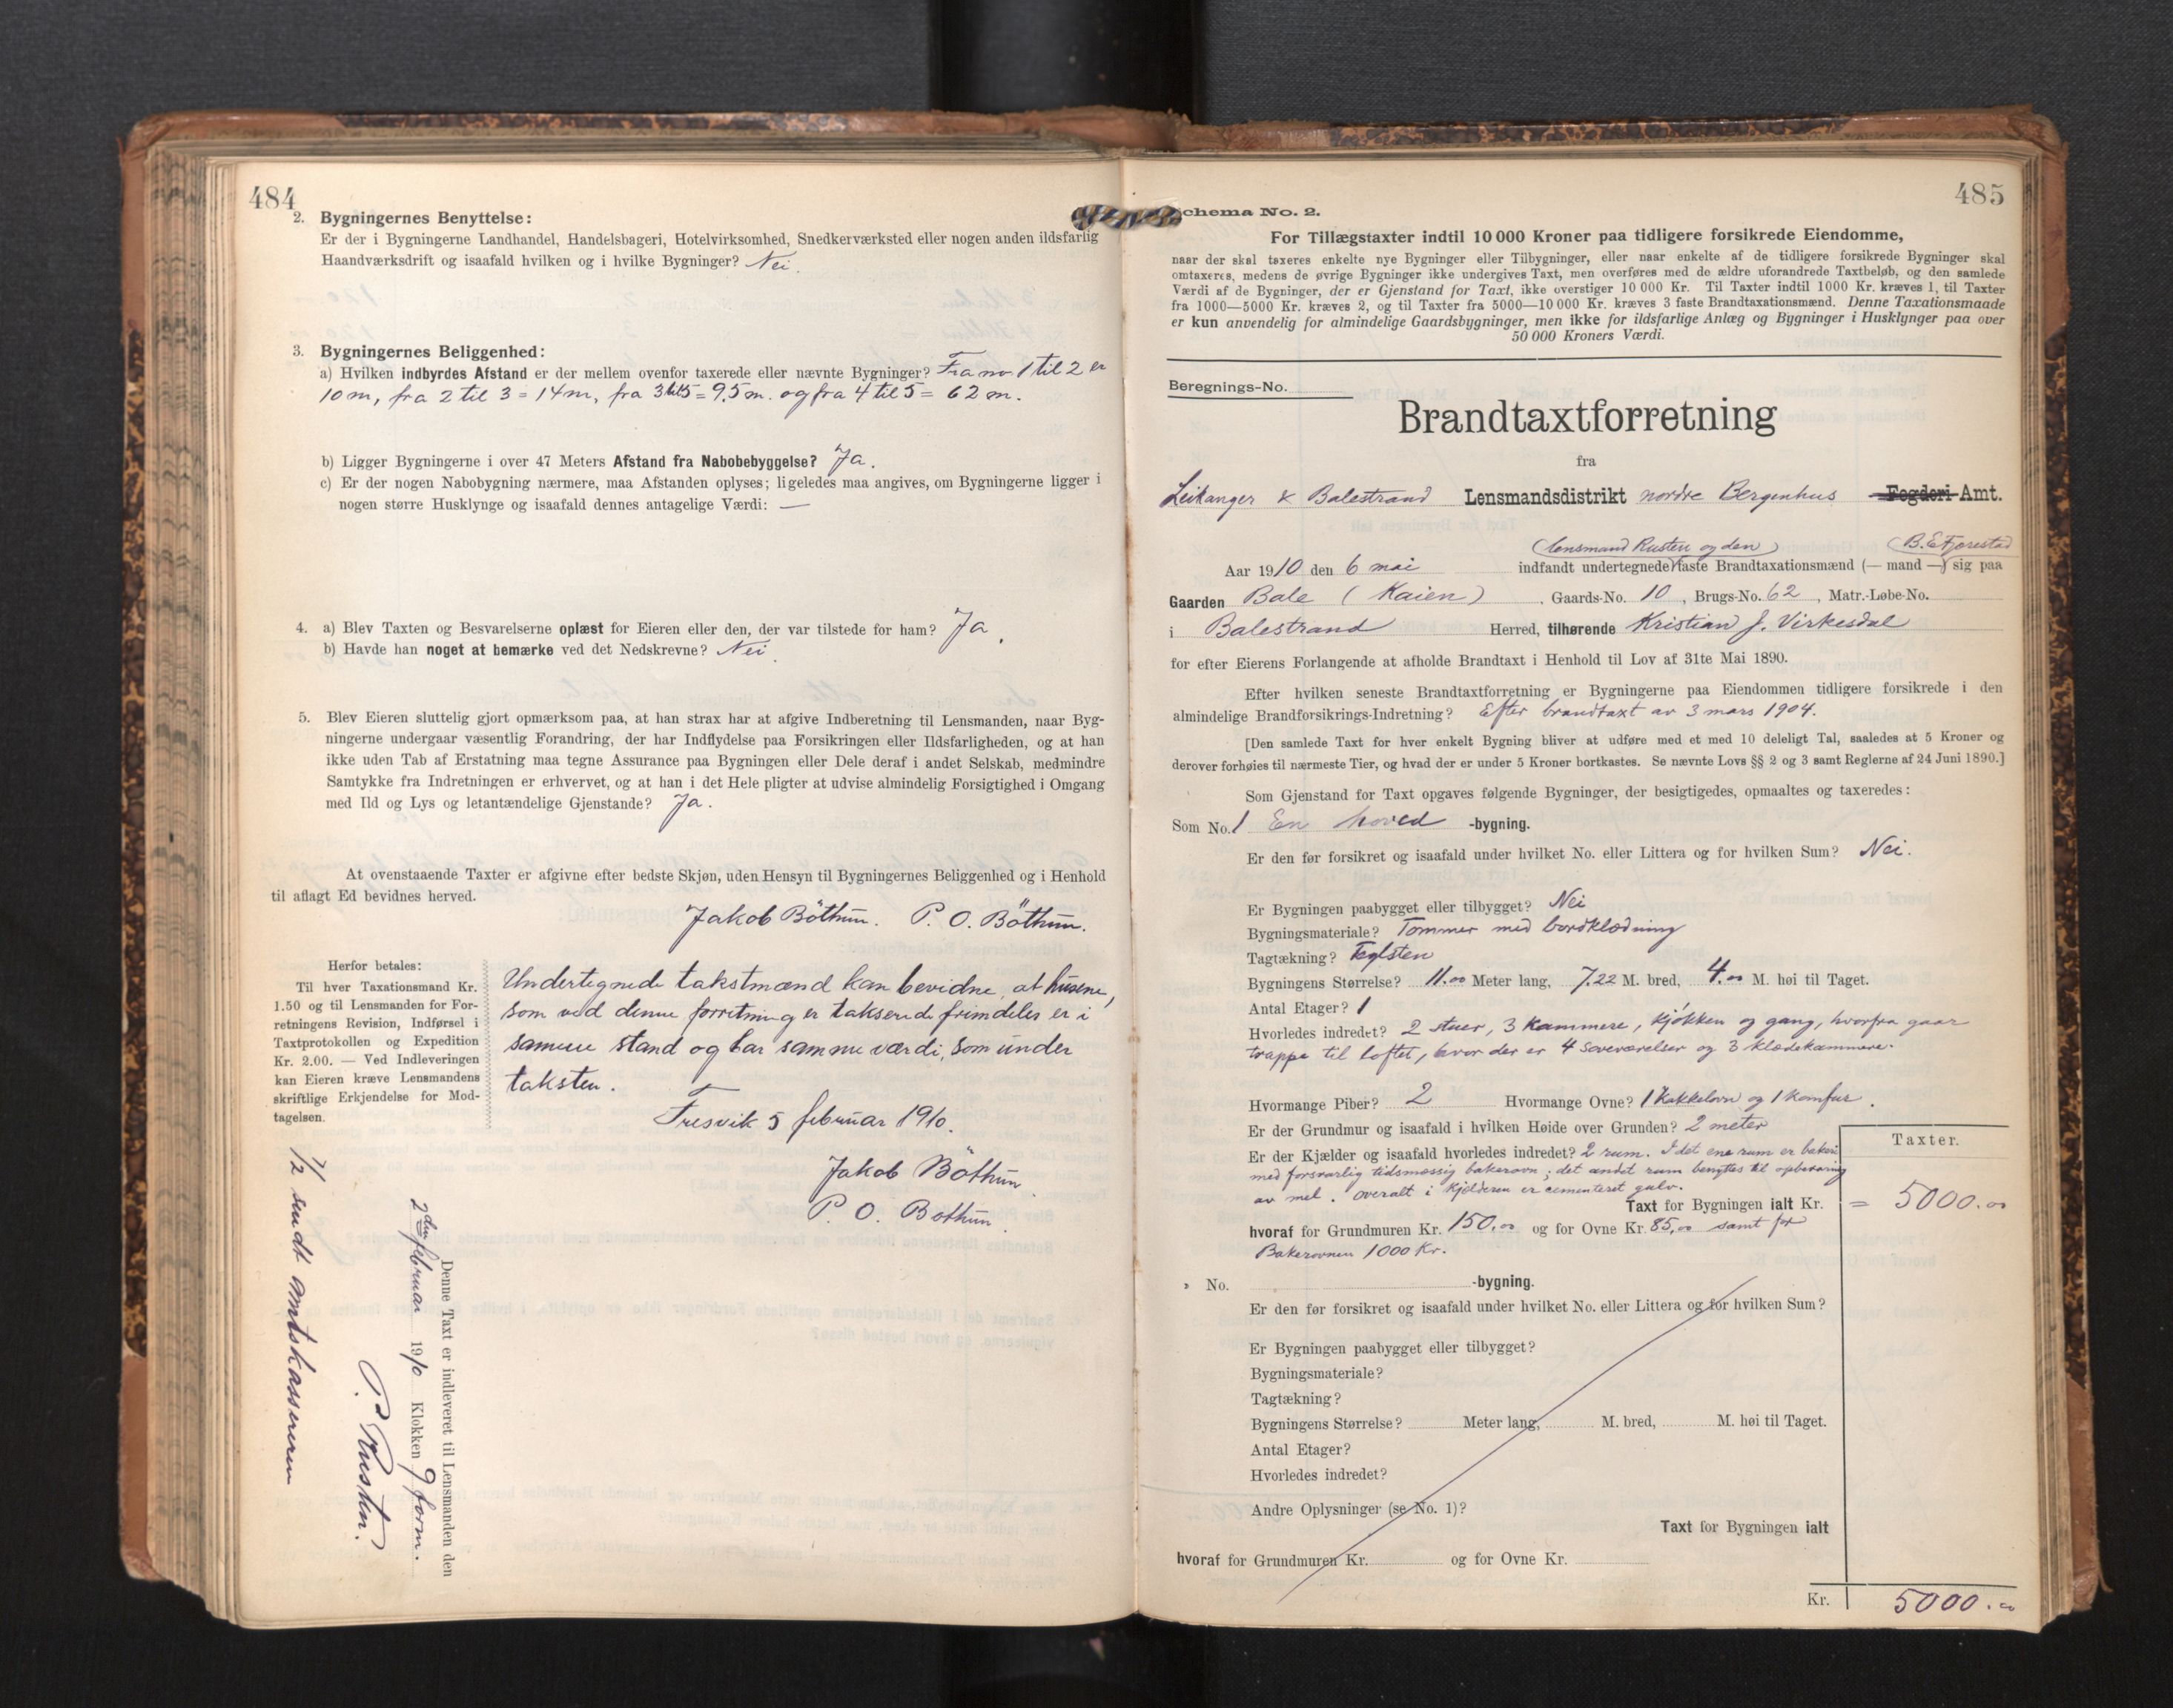 484
2. Bygningernes Benyttelse:
Er der i Bygningerne Landhandel, Handelsbageri, Hotelvirksomhed, Snedkerværksted eller nogen anden ildsfarlig
Haandværksdrift og isaafald hvilken og i hvilke Bygninger? Nei.
3. Bygningernes Beliggenhed:
a) Hvilken indbyrdes Afstand er der mellem ovenfor taxerede eller nævnte Bygninger? Fra no. 1 til 2 er
10 m, fra 2 til 3 = 14 m, fra 3 til 5 = 9,5 m. og fra 4 til 5 = 62 m.
b) Ligger Bygningerne i over 47 Meters Afstand fra Nabobebyggelse? Ja.
c) Er der nogen Nabobygning nærmere, maa Afstanden oplyses; ligeledes maa angives, om Bygningerne ligger i
nogen større Husklynge og isaafald dennes antagelige Værdi: —
4. a) Blev Taxten og Besvarelserne oplæst for Eieren eller den, der var tilstede for ham? Ja.
b) Havde han noget at bemærke ved det Nedskrevne? Nei
5. Blev Eieren sluttelig gjort opmærksom paa, at han strax har at afgive Indberetning til Lensmanden, naar Byg-
ningerne undergaar væsentlig Forandring, der har Indflydelse paa Forsikringen eller Ildsfarligheden, og at han
ikke uden Tab af Erstatning maa tegne Assurance paa Bygningen eller Dele deraf i andet Selskab, medmindre
Samtykke fra Indretningen er erhvervet, og at han i det Hele pligter at udvise almindelig Forsigtighed i Omgang
med Ild og Lys og letantændelige Gjenstande? Ja.
At ovenstaaende Taxter er afgivne efter bedste Skjøn, uden Hensyn til Bygningernes Beliggenhed og i Henhold
til aflagt Ed bevidnes herved.
Jakob Böthun. P. O. Böthun.
Herfor betales:
Til hver Taxationsmand Kr.
1.50 og til Lensmanden for For-
retningens Revision, Indførsel i
Taxtprotokollen og Expedition
Kr. 2.00. — Ved Indleveringen
kan Eieren kræve Lensmandens
skriftlige Erkjendelse for Mod-
tagelsen.
Undertegnede takstmænd kan bevidne, at husene,
som ved denne forretning er takserede fremdeles er i
samme stand og har samme værdi, som under
taksten.
Fresvik 5 februar 1910.
Jakob Böthun
P. O. Bothun
Denne Taxt er indleveret til Lensmanden den
2den februar 1910 Klokken 9 form.
P. Rusten.
1/2 sendt amtskassereren
485
Schema No. 2.
For Tillægstaxter indtil 10 000 Kroner paa tidligere forsikrede Eiendomme,
naar der skal taxeres enkelte nye Bygninger eller Tilbygninger, eller naar enkelte af de tidligere forsikrede Bygninger skal
omtaxeres, medens de øvrige Bygninger ikke undergives Taxt, men overføres med de ældre uforandrede Taxtbeløb, og den samlede
Værdi af de Bygninger, der er Gjenstand for Taxt, ikke overstiger 10 000 Kr. Til Taxter indtil 1000 Kr. kræves 1, til Taxter
fra 1000—5000 Kr. kræves 2, og til Taxter fra 5000—10 000 Kr. kræves 3 faste Brandtaxationsmænd. Denne Taxationsmaade
er kun anvendelig for almindelige Gaardsbygninger, men ikke for ildsfarlige Anlæg og Bygninger i Husklynger paa over
50 000 Kroners Værdi.
Beregnings-No.
Brandtaxtforretning
fra
Leikanger & Balestrand Lensmandsdistrikt nordre Bergenhus Fogderi Amt.
(lensmand Rusten og den) (B. E. Fjørestad
Aar 1910 den 6 mai indfandt undertegnede faste Brandtaxationsmænd (— mand —) sig paa
Gaarden Bale (Kaien), Gaards-No. 10, Brugs-No. 62, Matr.-Løbe-No.
i Balestrand Herred, tilhørende Kristian J. Virkesdal
for efter Eierens Forlangende at afholde Brandtaxt i Henhold til Lov af 31te Mai 1890.
Efter hvilken seneste Brandtaxtforretning er Bygningerne paa Eiendommen tidligere forsikrede i den
almindelige Brandforsikrings-Indretning? Efter brandtaxt av 3 mars 1904.
[Den samlede Taxt for hver enkelt Bygning bliver at udføre med et med 10 deleligt Tal, saaledes at 5 Kroner og
derover forhøies til nærmeste Tier, og hvad der er under 5 Kroner bortkastes. Se nævnte Lovs §§ 2 og 3 samt Reglerne af 24 Juni 1890.]
Som Gjenstand for Taxt opgaves følgende Bygninger, der besigtigedes, opmaaltes og taxeredes:
Som No. 1 En hoved -bygning.
Er den før forsikret og isaafald under hvilket No. eller Littera og for hvilken Sum? Nei.
Er Bygningen paabygget eller tilbygget? Nei
Bygningsmateriale? Tømmer med bordklædning
Tagtækning? Teglsten
Bygningens Størrelse? 11.00 Meter lang, 7.22 M. bred, 4.00 M. høi til Taget.
Antal Etager? 1
Hvorledes indredet? 2 stuer, 3 kammere, kjøkken og gang, hvorfra gaar
trappe til loftet, hvor der er 4 soveværelser og 3 klædekammere.
Hvormange Piber? 2 Hvormange Ovne? 1 kakkelovn og 1 komfur.
Er der Grundmur og isaafald i hvilken Høide over Grunden? 2 meter
Taxter.
Er der Kjælder og isaafald hvorledes indredet? 2 rum. I det ene rum er bakeri
med forsvarlig tidsmæssig bakerovn; det andet rum benyttes til opbevaring
av mel. Overalt i kjelderen er cementeret gulv.
Taxt for Bygningen ialt Kr. = 5000.00
hvoraf for Grundmuren Kr. 150.00 og for Ovne Kr. 85,00 samt for
Bakerovnen 1000 Kr.
" No. -bygning.
Er den før forsikret og isaafald under hvilket No. eller Littera og for hvilken Sum?
Er Bygningen paabygget eller tilbygget?
Bygningsmateriale?
Tagtækning?
Bygningens Størrelse? Meter lang, M. bred, M. høi til Taget.
Antal Etager?
Hvorledes indredet?
Andre Oplysninger (se No. 1)?
Taxt for Bygningen ialt
hvoraf for Grundmuren Kr. og for Ovne Kr.
Kr. 5000.00